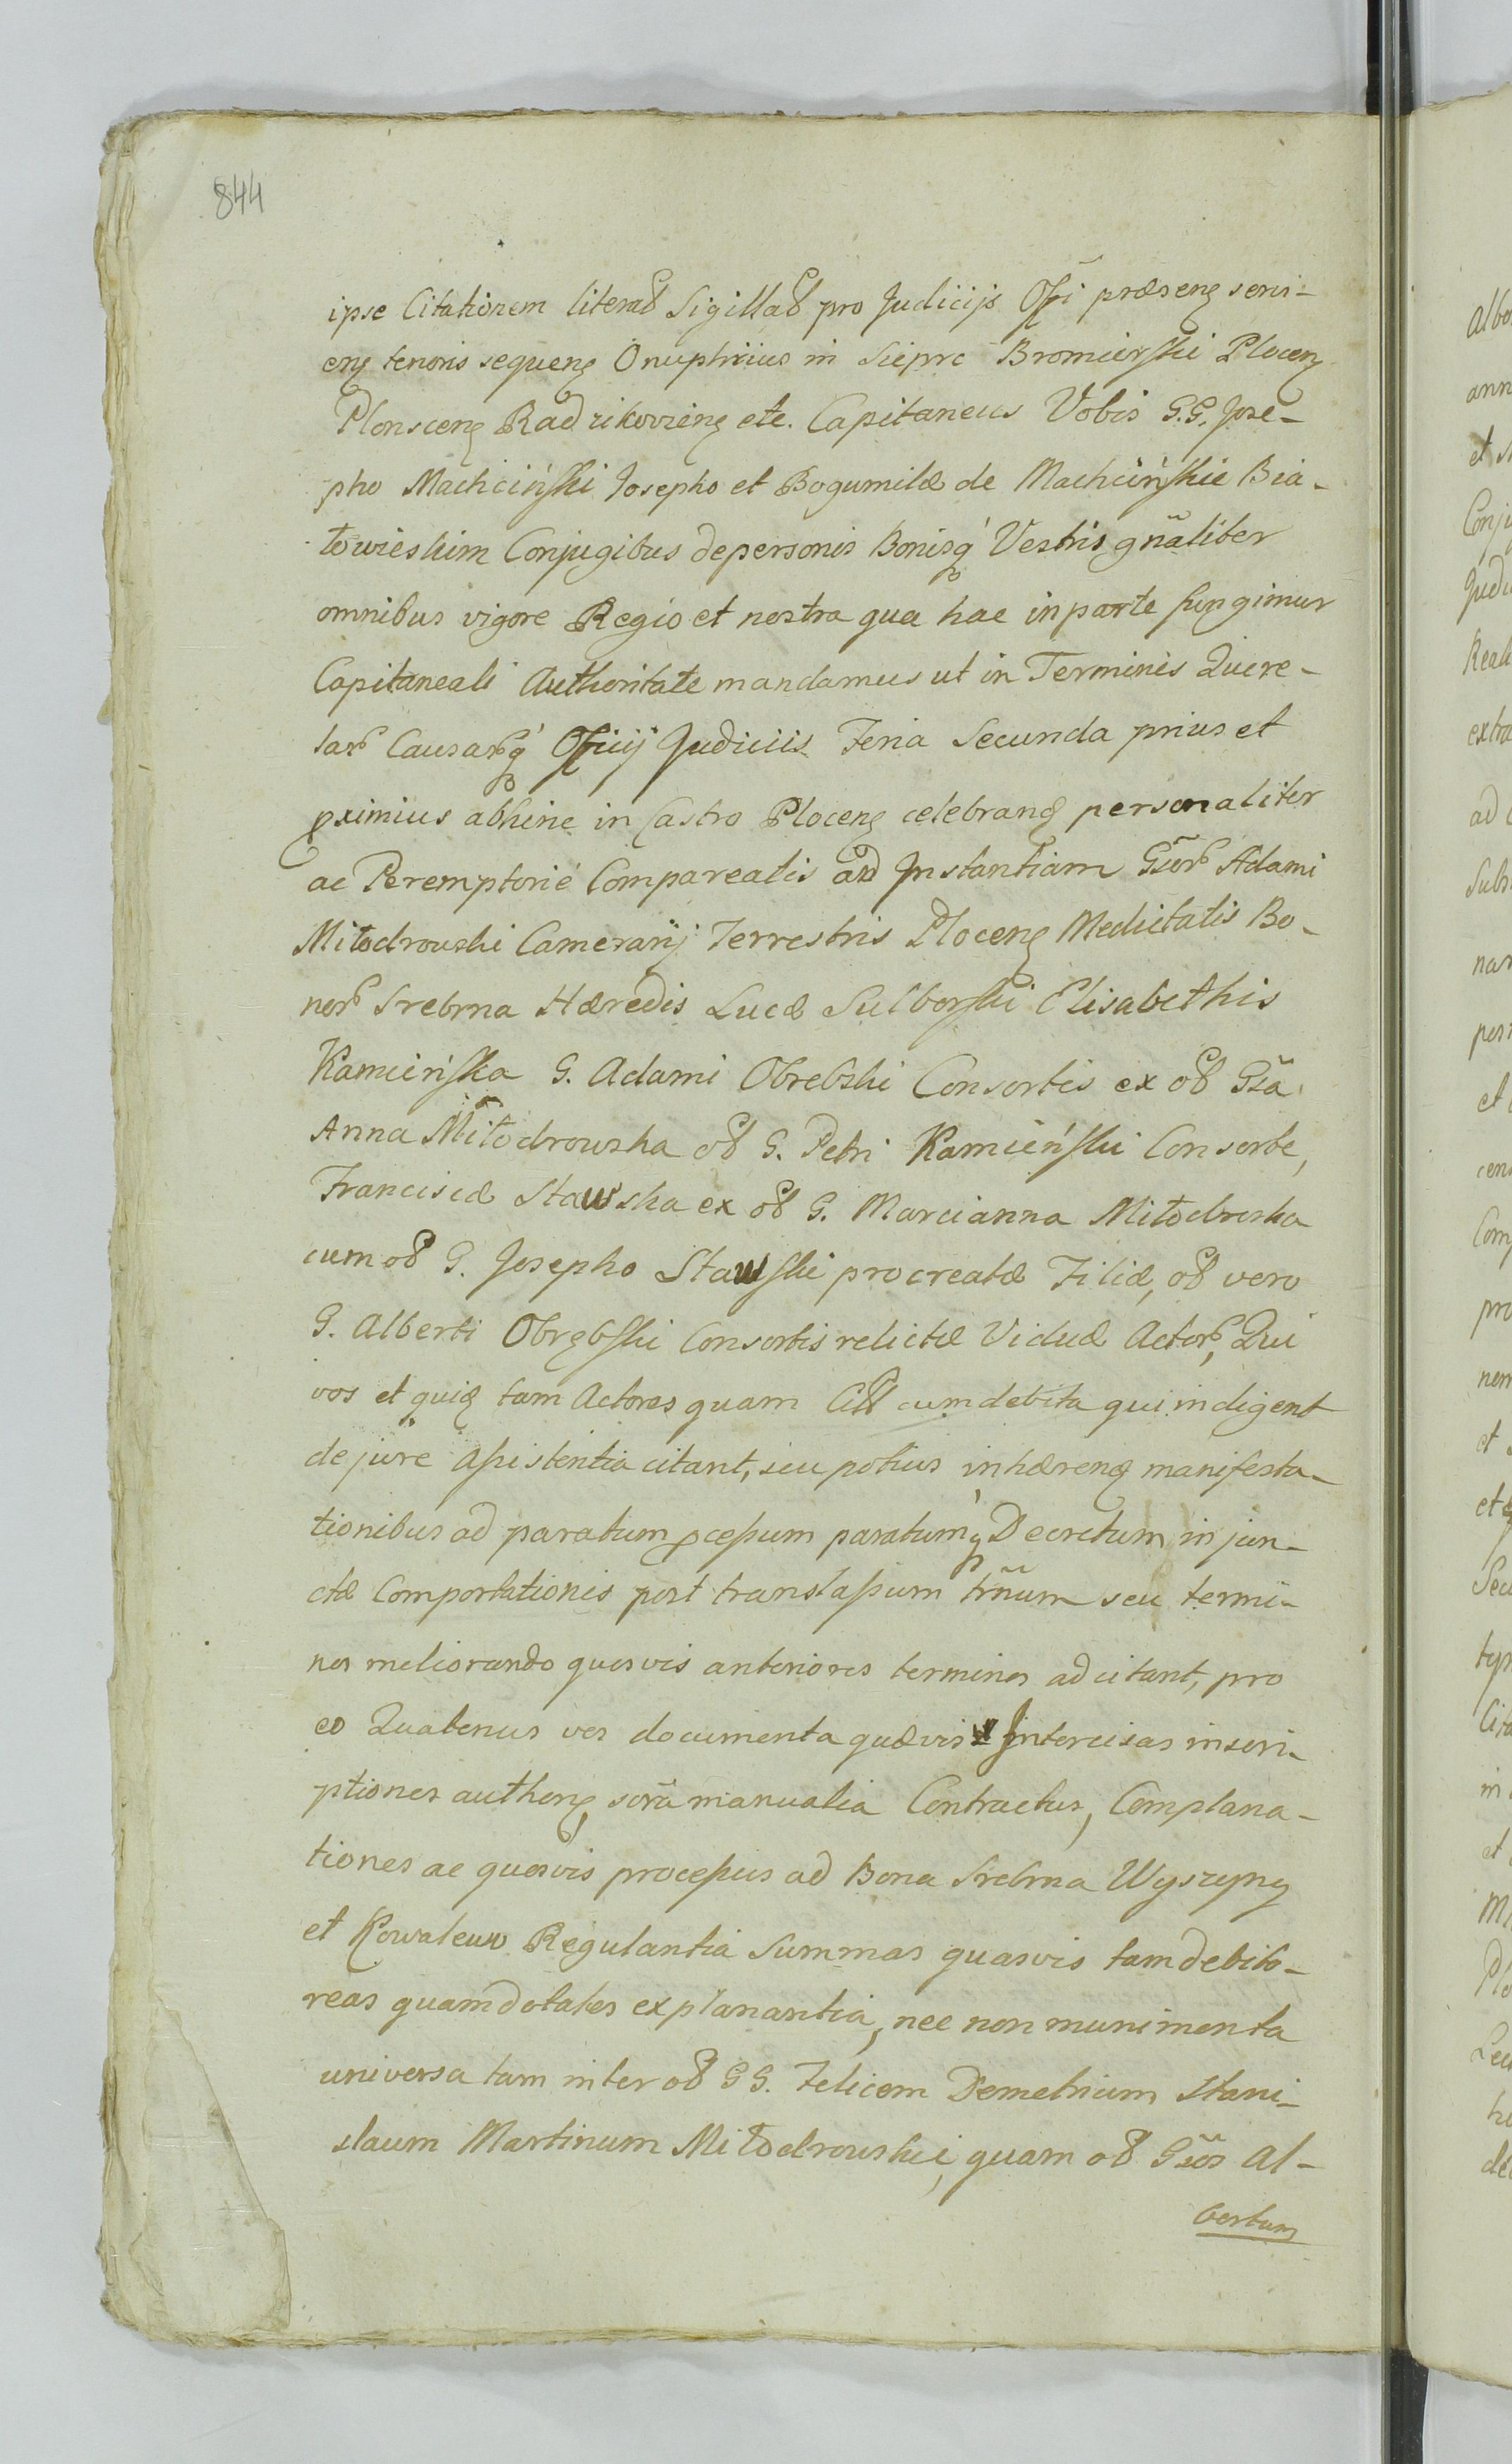 844
ipse Citationem literal Sigillal pro Judicijs Offi præseng scri-
eng tenoris sequeng Onuphrius in Siepre Bromierski Ploceng
Plonsceng Radzikovieng etc. Capitaneus Vobis G.G. Jose-
pho Machciński Josepho et Bogumilæ de Machcińskie Bia-
łowieskim Conjugibus de personis Bonisq́ Vestris gñaliter
omnibus vigore Regio et nostra qua hac in parte fungimur
Capitaneali Authoritate mandamus ut in Terminis Quere-
lar Causarq́ Officij Judiciis Feria Secunda prius et
proximius abhinc in Castro Ploceng celebrang personaliter
ac Peremptorié Compareatis ad Instantiam Gsor Adami
Miłodrowski Camerarij Terrestris Ploceng Medietatis Bo-
nor Srebrna Hæredis Lucæ Sulborski Elisabethis
Kamieńska G. Adami Obrebski Consortis ex ol Gsa
Anna Miłodrowska ol G. Petri Kamieński Consorte,
Franciscæ Stawska ex ol G. Marcianna Miłodroska
cum ol G. Josepho Stawski procreatæ Filiæ, ol vero
G. Alberti Obrębski Consortis relictæ Viduæ Actor, Qui
vos et quiq tam Actores quam Citt cum debita qui indigent
de jure assistentia citant, seu potius inhæreng manifesta-
tionibus ad paratum pcessum paratumq́ Decretum injun-
ctæ Comportationis post translapsum trñum seu termi-
nos meliorando quosvis anteriores terminos adcitant, pro
eo Quatenus vos documenta quævis Intercisas inscri-
ptiones autheng scrã manualia Contractus, Complana-
tiones ac quosvis processus ad Bona Srebrna Wyszyny
et Kowalewo Regulantia Summas quasvis tam debito-
reas quam dotales explanantia, nec non munimenta
universa tam inter ol GG. Felicem Demetrium Stani-
slaum Martinum Miłodrowskie, quam ol Gsos Al-
bertum